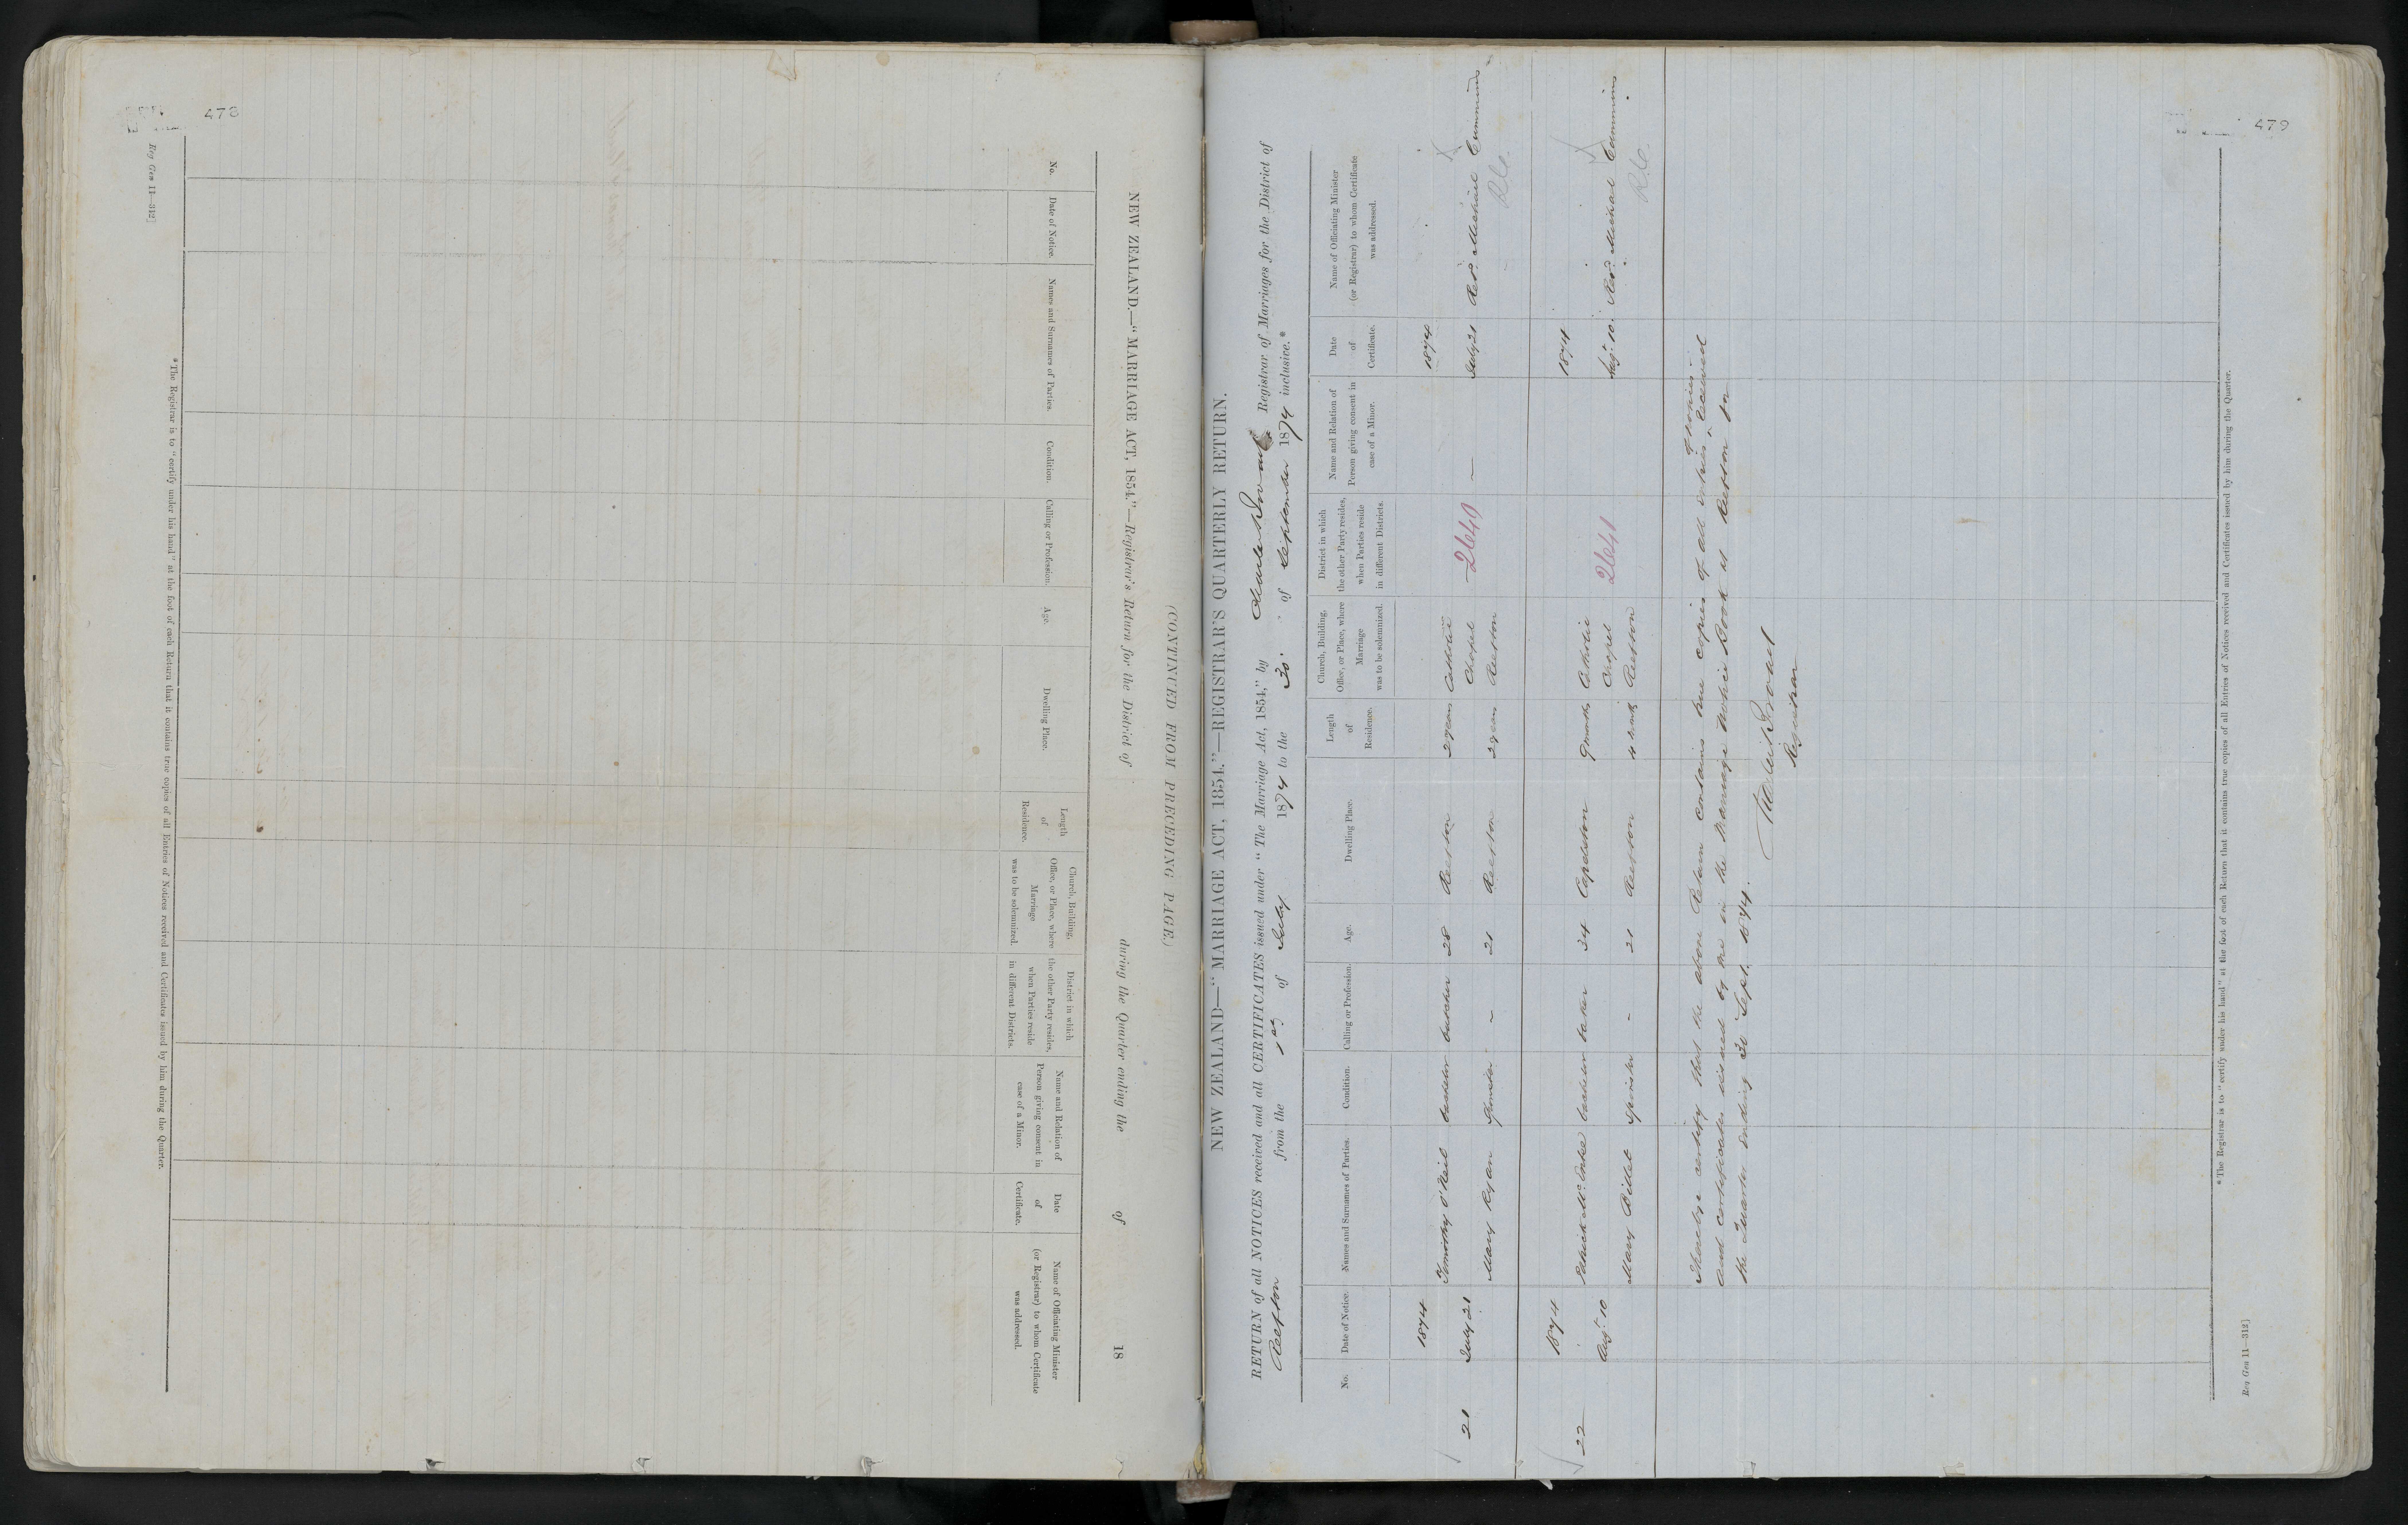 478
(CONTINUED FROM PRECEDING PAGE.)
NEW ZEALAND.—"MARRIAGE ACT, 1854."—Registrar's Return for the District of during the Quarter ending the of 18
No.
Date of Notice.
Names and Surnames of Parties.
Condition.
Calling or Profession.
Age.
Dwelling Place.
Length
of
Residence.
Church, Building,
Office, or Place, where
Marriage
was to be solemnized.
District in which
the other Party resides,
when Parties reside
in different Districts.
Name and Relation of
Person giving consent in
case of a Minor.
Date
of
Certificate.
Name of Officiating Minister
(or Registrar) to whom Certificate
was addressed.
*The Registrar is to "certify under his hand" at the foot of each Return that it contains true copies of all Entries of Notices received and Certificates issued by him during the Quarter.
Reg Gen 11—312]
479
NEW ZEALAND—"MARRIAGE ACT, 1854."—REGISTRAR'S QUARTERLY RETURN.
RETURN of all NOTICES received and all CERTIFICATES issued under "The Marriage Act, 1854," by Charles Broad Registrar of Marriages for the District of
Reefton from the 1st of July 1874 to the 30 of September 1874 inclusive.*
No.
Date of Notice.
Names and Surnames of Parties.
Condition.
Calling or Profession.
Age.
Dwelling Place.
Length
of
Residence.
Church, Building,
Office, or Place, where
Marriage
was to be solemnized.
District in which
the other Party resides,
when Parties reside
in different Districts.
Name and Relation of
Person giving consent in
case of a Minor.
Date
of
Certificate.
Name of Officiating Minister
(or Registrar) to whom Certificate
was addressed.
1874 1874
Timothy O'Neil bachelor butcher 28 Reefton 2 years Catholic
21 July 21 Chapel 2640 — July 21 Revd. Michael Cummins
Mary Ryan Spinster - ~ 21 Reefton 2 years Reefton R.C.
1874 1874
Patrick bachelor baker 34 Capleston 9 months Catholic
22 Augt. 10 Chapel 2641 Augt. 10. Revd. Michael Cummins
Mary Billet Spinster - 21 Reefton months Reefton R.C.
I hereby certify that the above Return contains true copies of all entries of notices received
and certificates issued by me in the Marriage Notice Book at Reefton for
the Quarter ending 30 Sept. 1874.
Charles Broad
Registrar
*The Registrar is to "certify under his hand" at the foot of each Return that it contains true copies of all Entries of Notices received and Certificates issued by him during the Quarter.
Reg Gen 11—312]